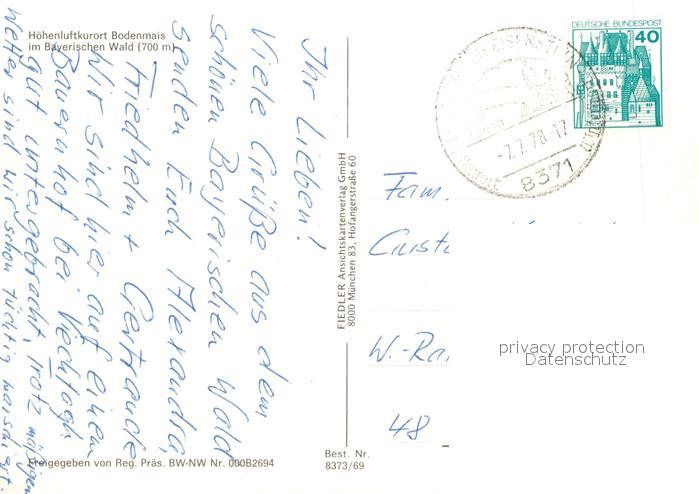 Höhenluftkurort Bodenmais
im Bayerischen Wald (700 m)
Ihr Lieben!
Viele Grüße aus dem
schönen Bayerischen Wald
senden Euch Alexandra,
Friedhelm + Gertraude
Wir sind hier auf einem
Bauernhof bei
gut untergebracht, trotz mäßigen
Wetter sind wir schon tüchtig marschiert.
Freigegeben von Reg. Präs. BW-NW Nr. 000B2694
FIEDLER Ansichtskartenverlag GmbH
8000 München 83, Hofangerstraße 60
Best. Nr.
8373/69
DEUTSCHE BUNDESPOST
40
-7.7.78-17
8371
Fam.
W.-
48
privacy protection
Datenschutz